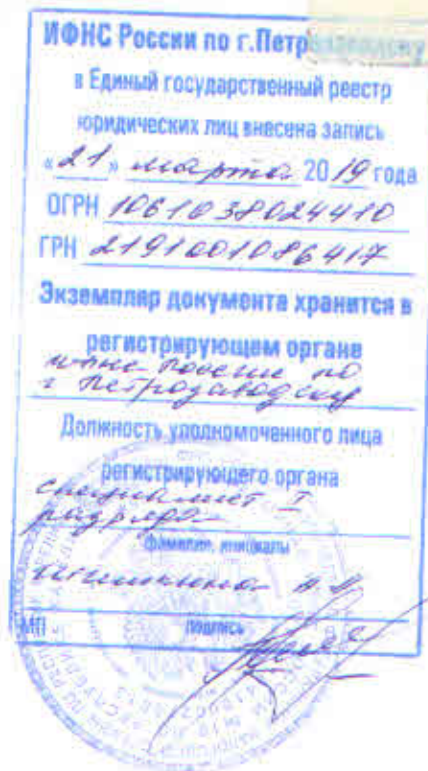 ИФНС России по г.Петрозаводску
в Единый государственный реестр
юридических лиц внесена запись
«21» марта 2019 года
ОГРН 1061038024410
ГРН 2191001086417
Экземпляр документа хранится в
регистрирующем органе
ИФНС России по
г Петрозаводску
Должность уполномоченного лица
регистрирующего органа
специалист I
разряда
фамилия, инициалы
МП подпись